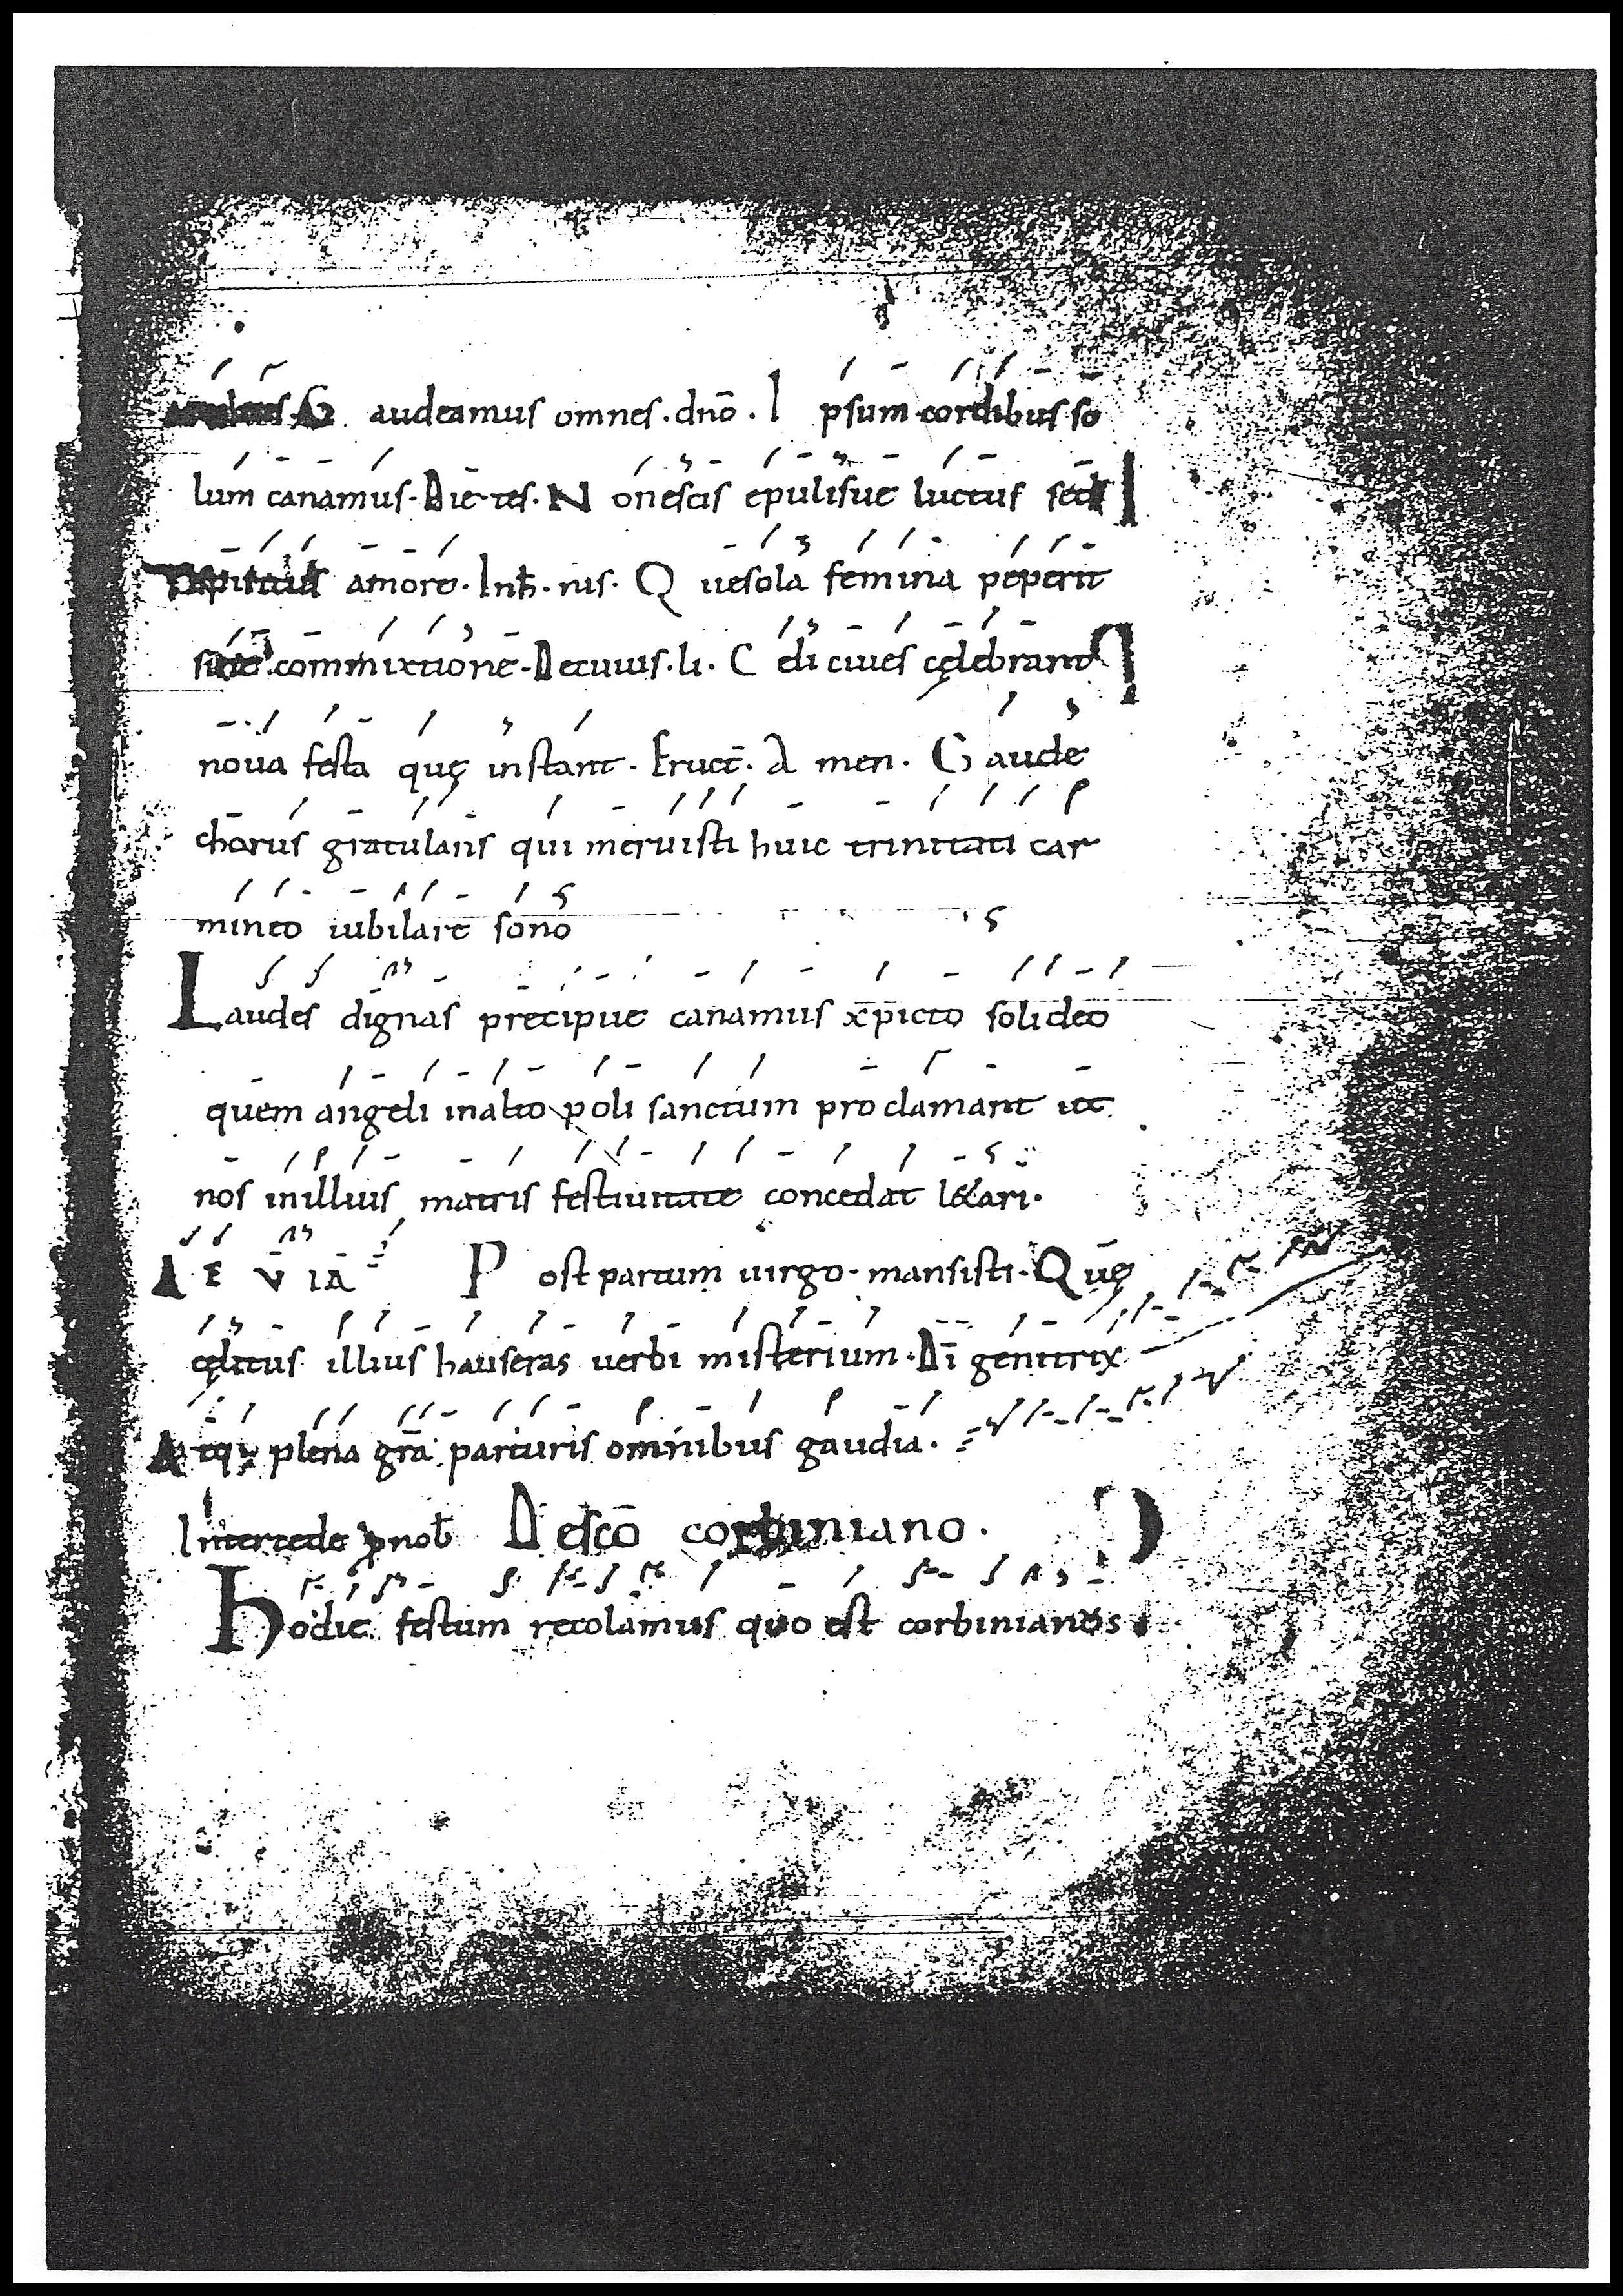 audeamus omnes. dnō. I psum cordibus so
lum canamus. Die tes. N onescis epulisue luctus sed
amore. Inħ. nis. Q uesola femina peperit
sine commixtione. Decuius. li. C eli ciues cęlebrant
noua festa quę instant. Eruct̄. A men. G aude
chorus gratulans qui meruisti huic trinitati car
mineo iubilare sono
Laudes dignas precipue canamus xp̄icto soli deo
quem angeli inalto poli sanctum proclamant ut
nos inillius matris festiuitate concedat l&ari.
A E V IA P ost partum uirgo. mansisti. Quę
cęlitus illius hauseras uerbi misterium. Dī genitrix
Atq; plena gr̄a parturis omnibus gaudia.
Intercede ꝓnob̄ Descō corbiniano.
Hodie festum recolamus quo est corbinianus